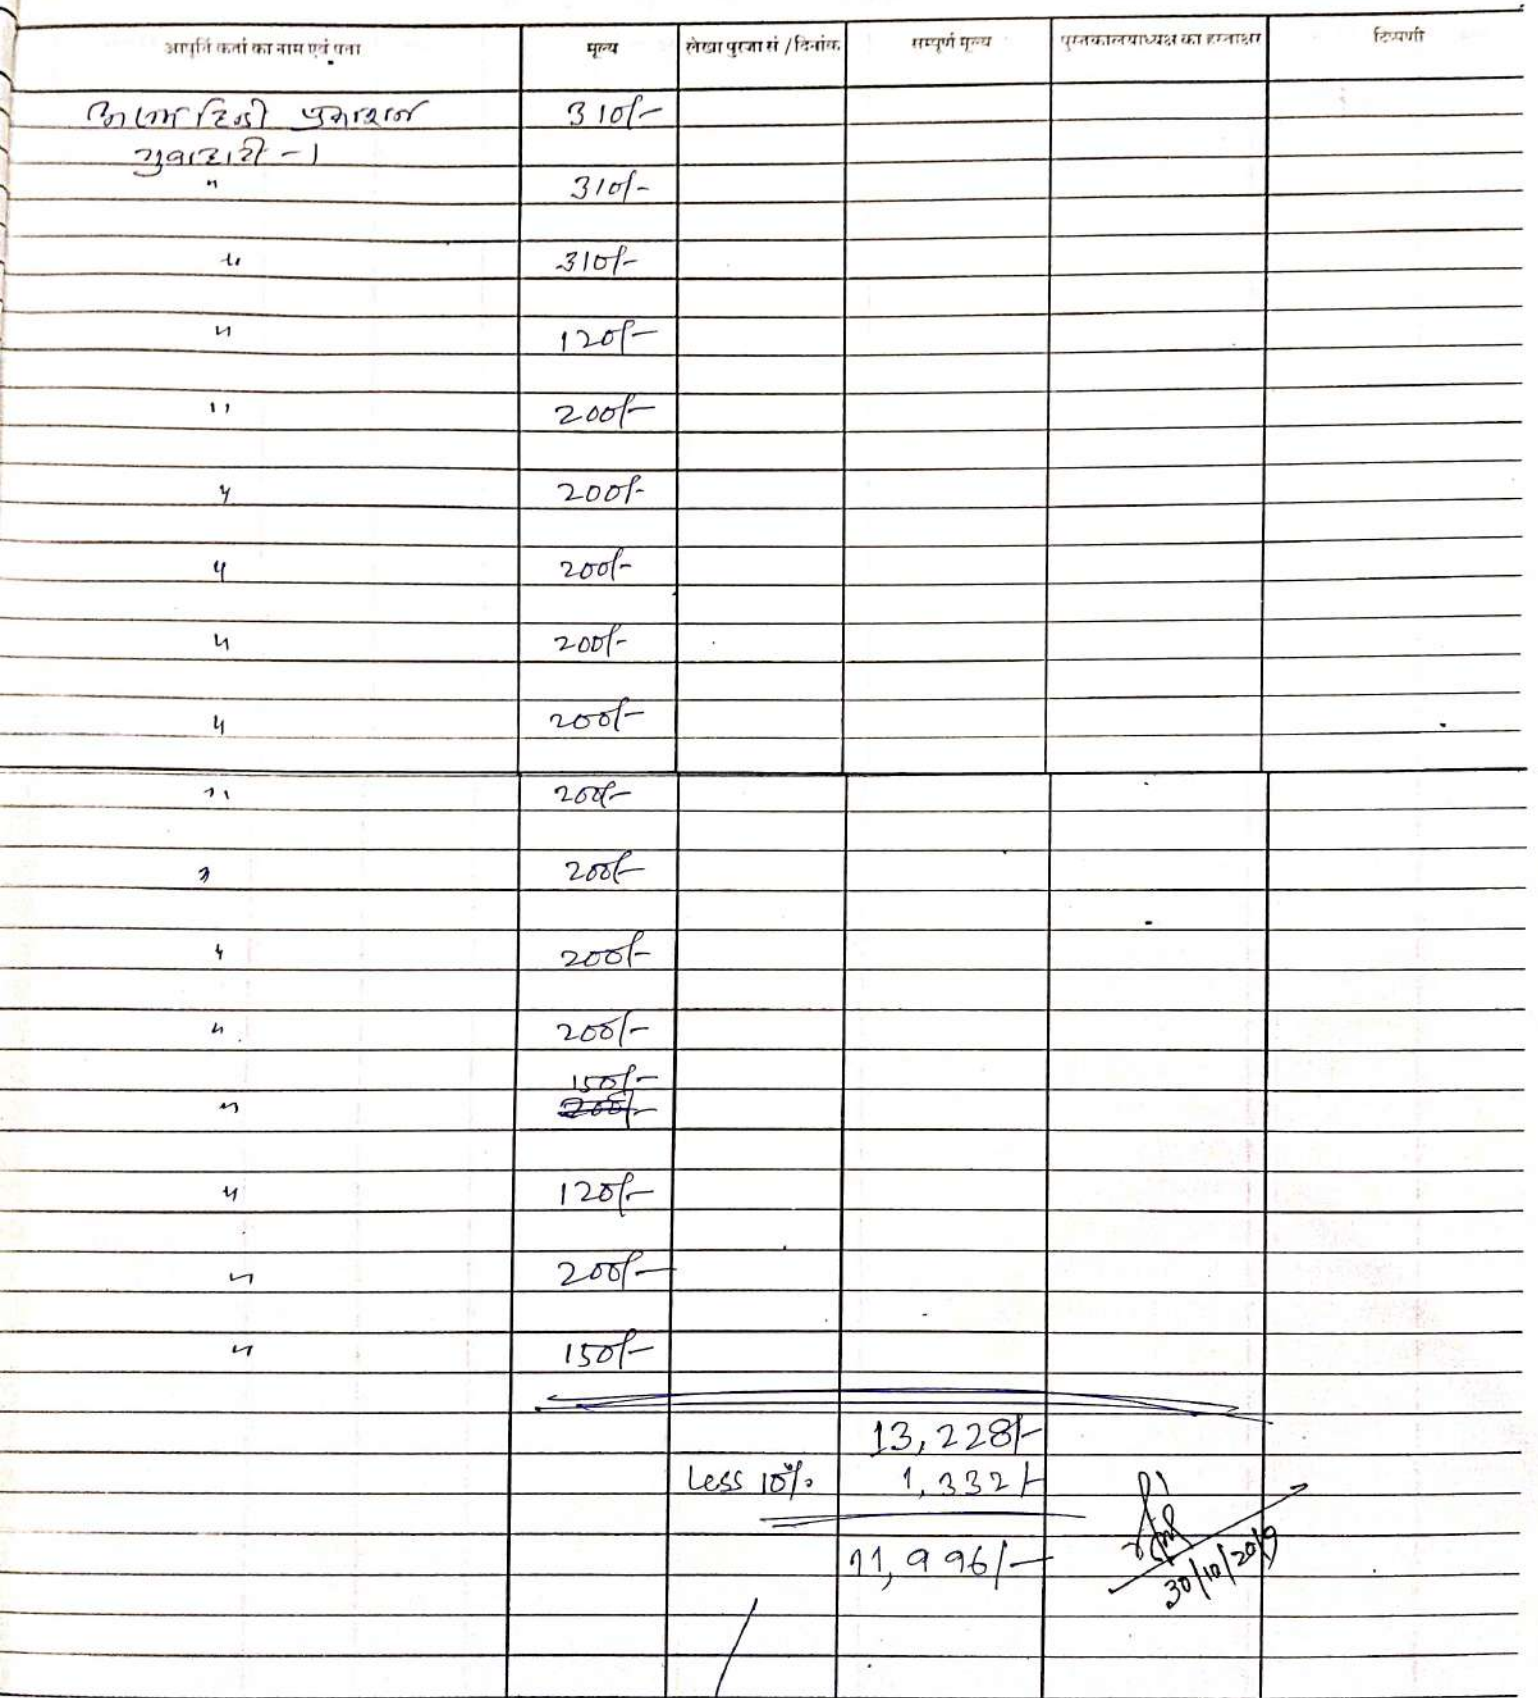 आपूर्ति कर्ता का नाम एवं पता मूल्य लेखा पुरजा सं / दिनांक सम्पूर्ण मूल्य पुस्तकालयाध्यक्ष का हस्ताक्षर टिप्पणी
हिन्दी प्रकाशन 310/-
गुवाहाटी - 1
" 310/-
" 310/-
" 120/-
" 200/-
" 200/-
" 200/-
" 200/-
" 200/-
" 200/-
" 200/-
" 200/-
" 200/-
150/-
" 200/-
" 120/-
" 200/-
" 150/-
13,228/-
Less 10% 1,332/-
11,996/-
30/10/2019